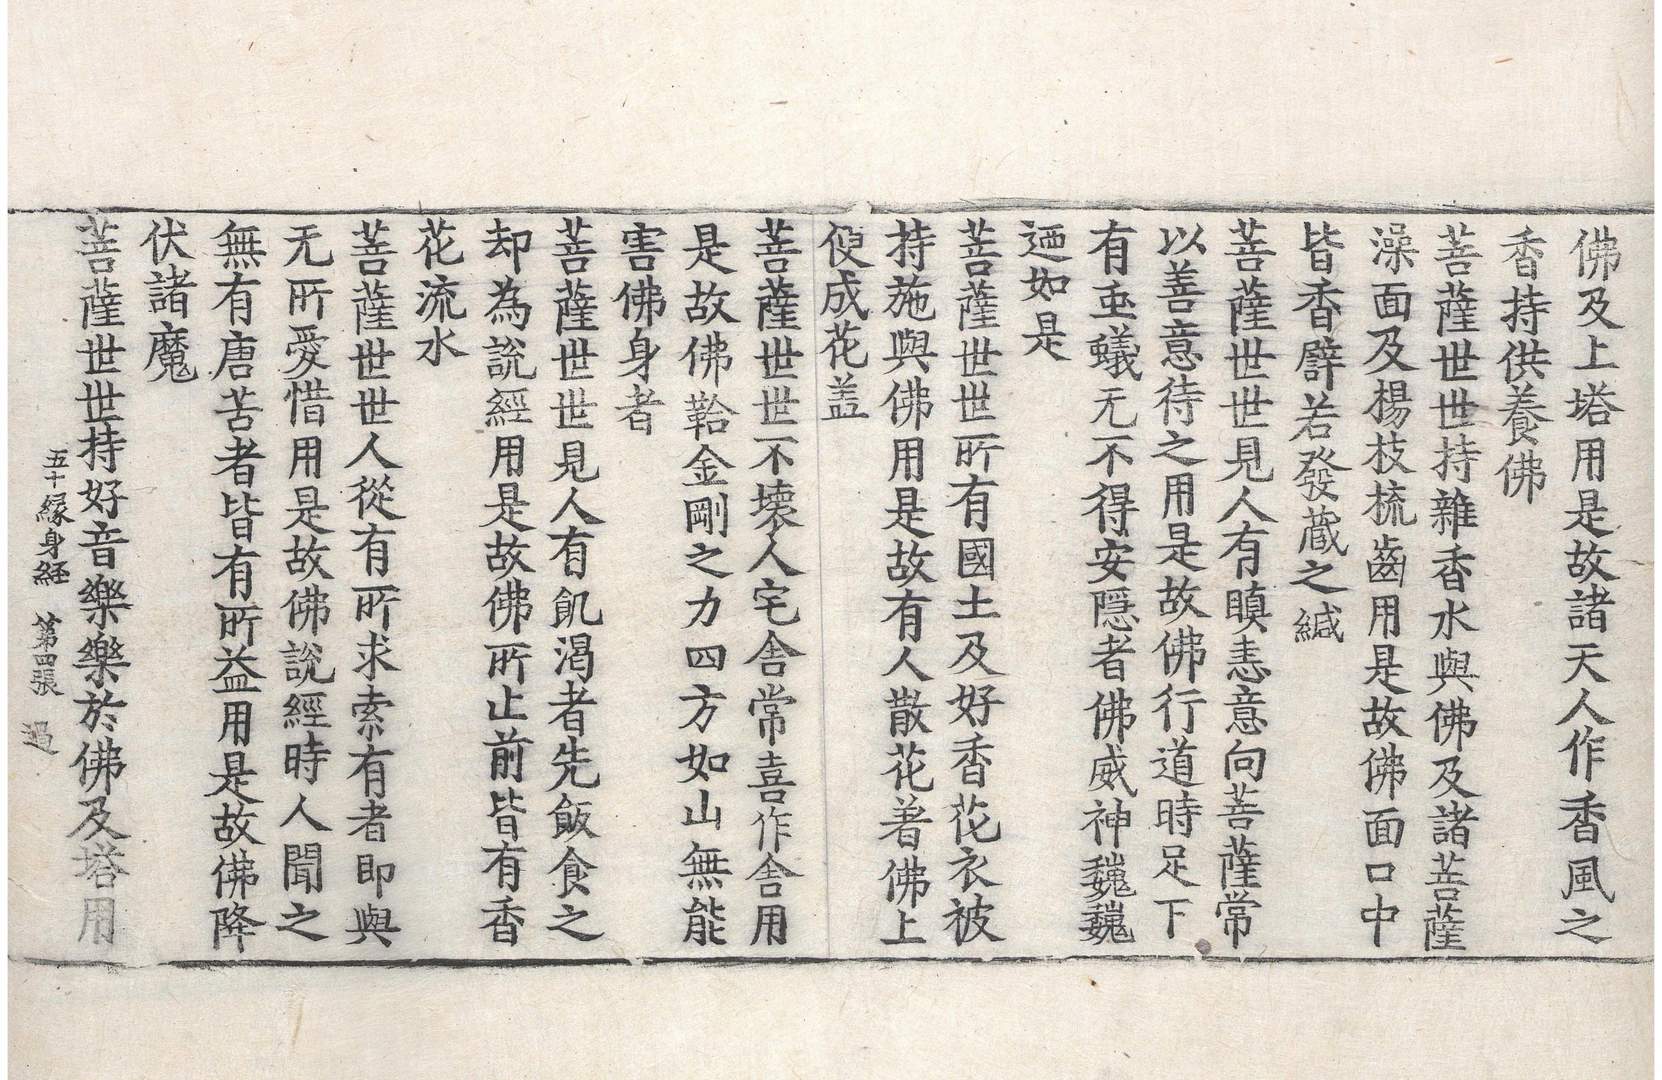 佛及上塔用是故諸天人作香風之
香持供養佛
菩薩世世持雜香水與佛及諸菩薩
澡面及楊枝梳齒用是故佛面口中
皆香譬若發蔵之緘
菩薩世世見人有瞋恚意向菩薩常
以善意待之用是故佛行道時足下
有䖝蟻无不得安隱者佛威神巍巍
迺如是
菩薩世世所有國土及好香花衣被
持施與佛用是故有人散花著佛上
便成花盖
菩薩世世不壊人宅舎常喜作舎用
是故佛鞈金剛之力四方如山無能
害佛身者
菩薩世世見人有飢渴者先飯食之
却為說經用是故佛所止前皆有香
花流水
菩薩世世人從有所求索有者即與
无所愛惜用是故佛說經時人聞之
無有唐苦者皆有所益用是故佛降
伏諸魔
菩薩世世持好音樂樂於佛及塔用
五十緣身経 第四張 過